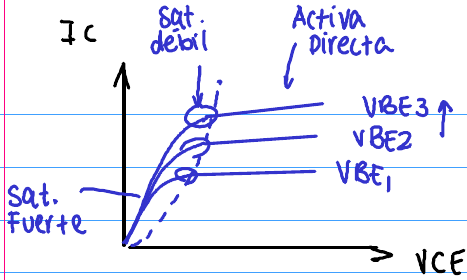 IC
Sat.
débil
Activa
Directa
VBE3
VBE2
VBE1
Sat.
Fuerte
VCE